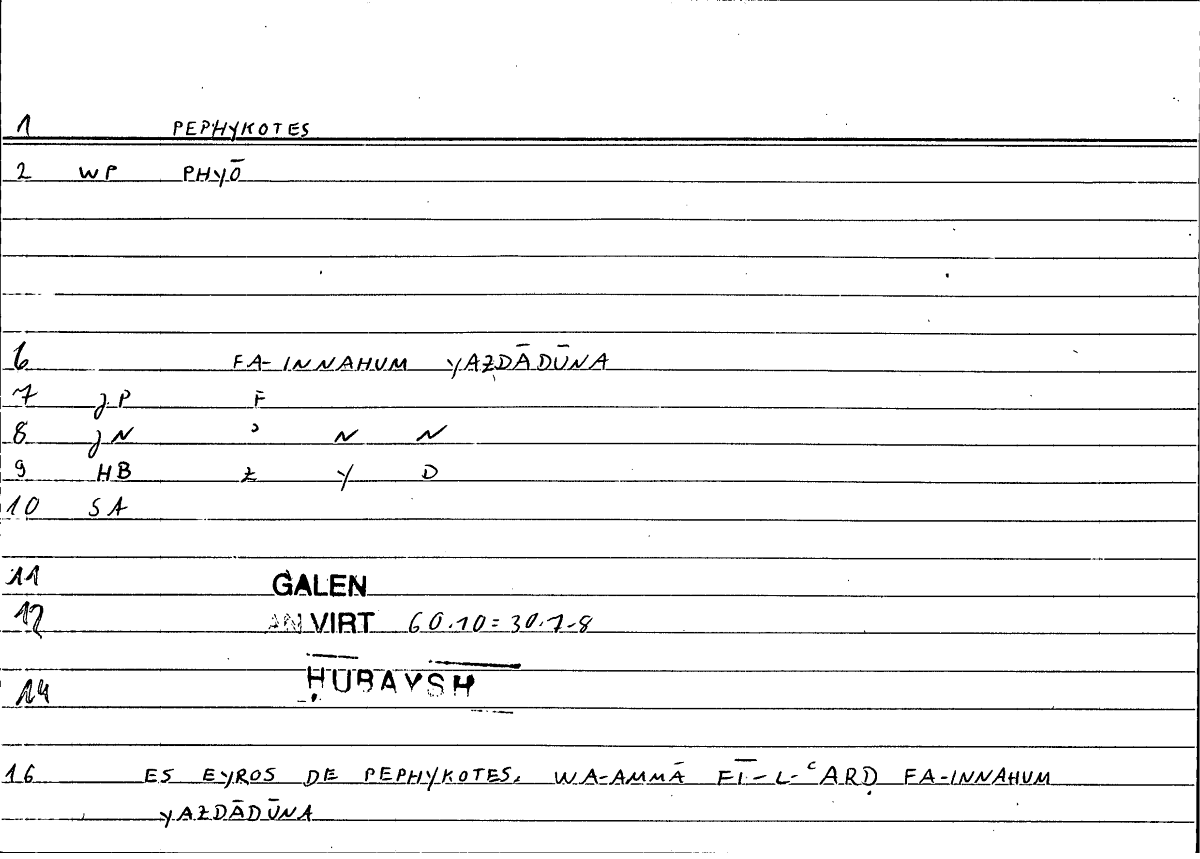 1 PEPHYKOTES
2 WP PHYŌ
6 FA-INNAHUM YAZDĀDŪNA
7 JP F
8 JN ʾ N N
9 HB Z Y D
10 SA
11 GALEN
12 AN VIRT 60.10=30.7-8
14 ḤUBAYSH
16 ES EYROS DE PEPHYKOTES. WA-AMMĀ FĪ-L-ʿARḌ FA-INNAHUM
YAZDĀDŪNA